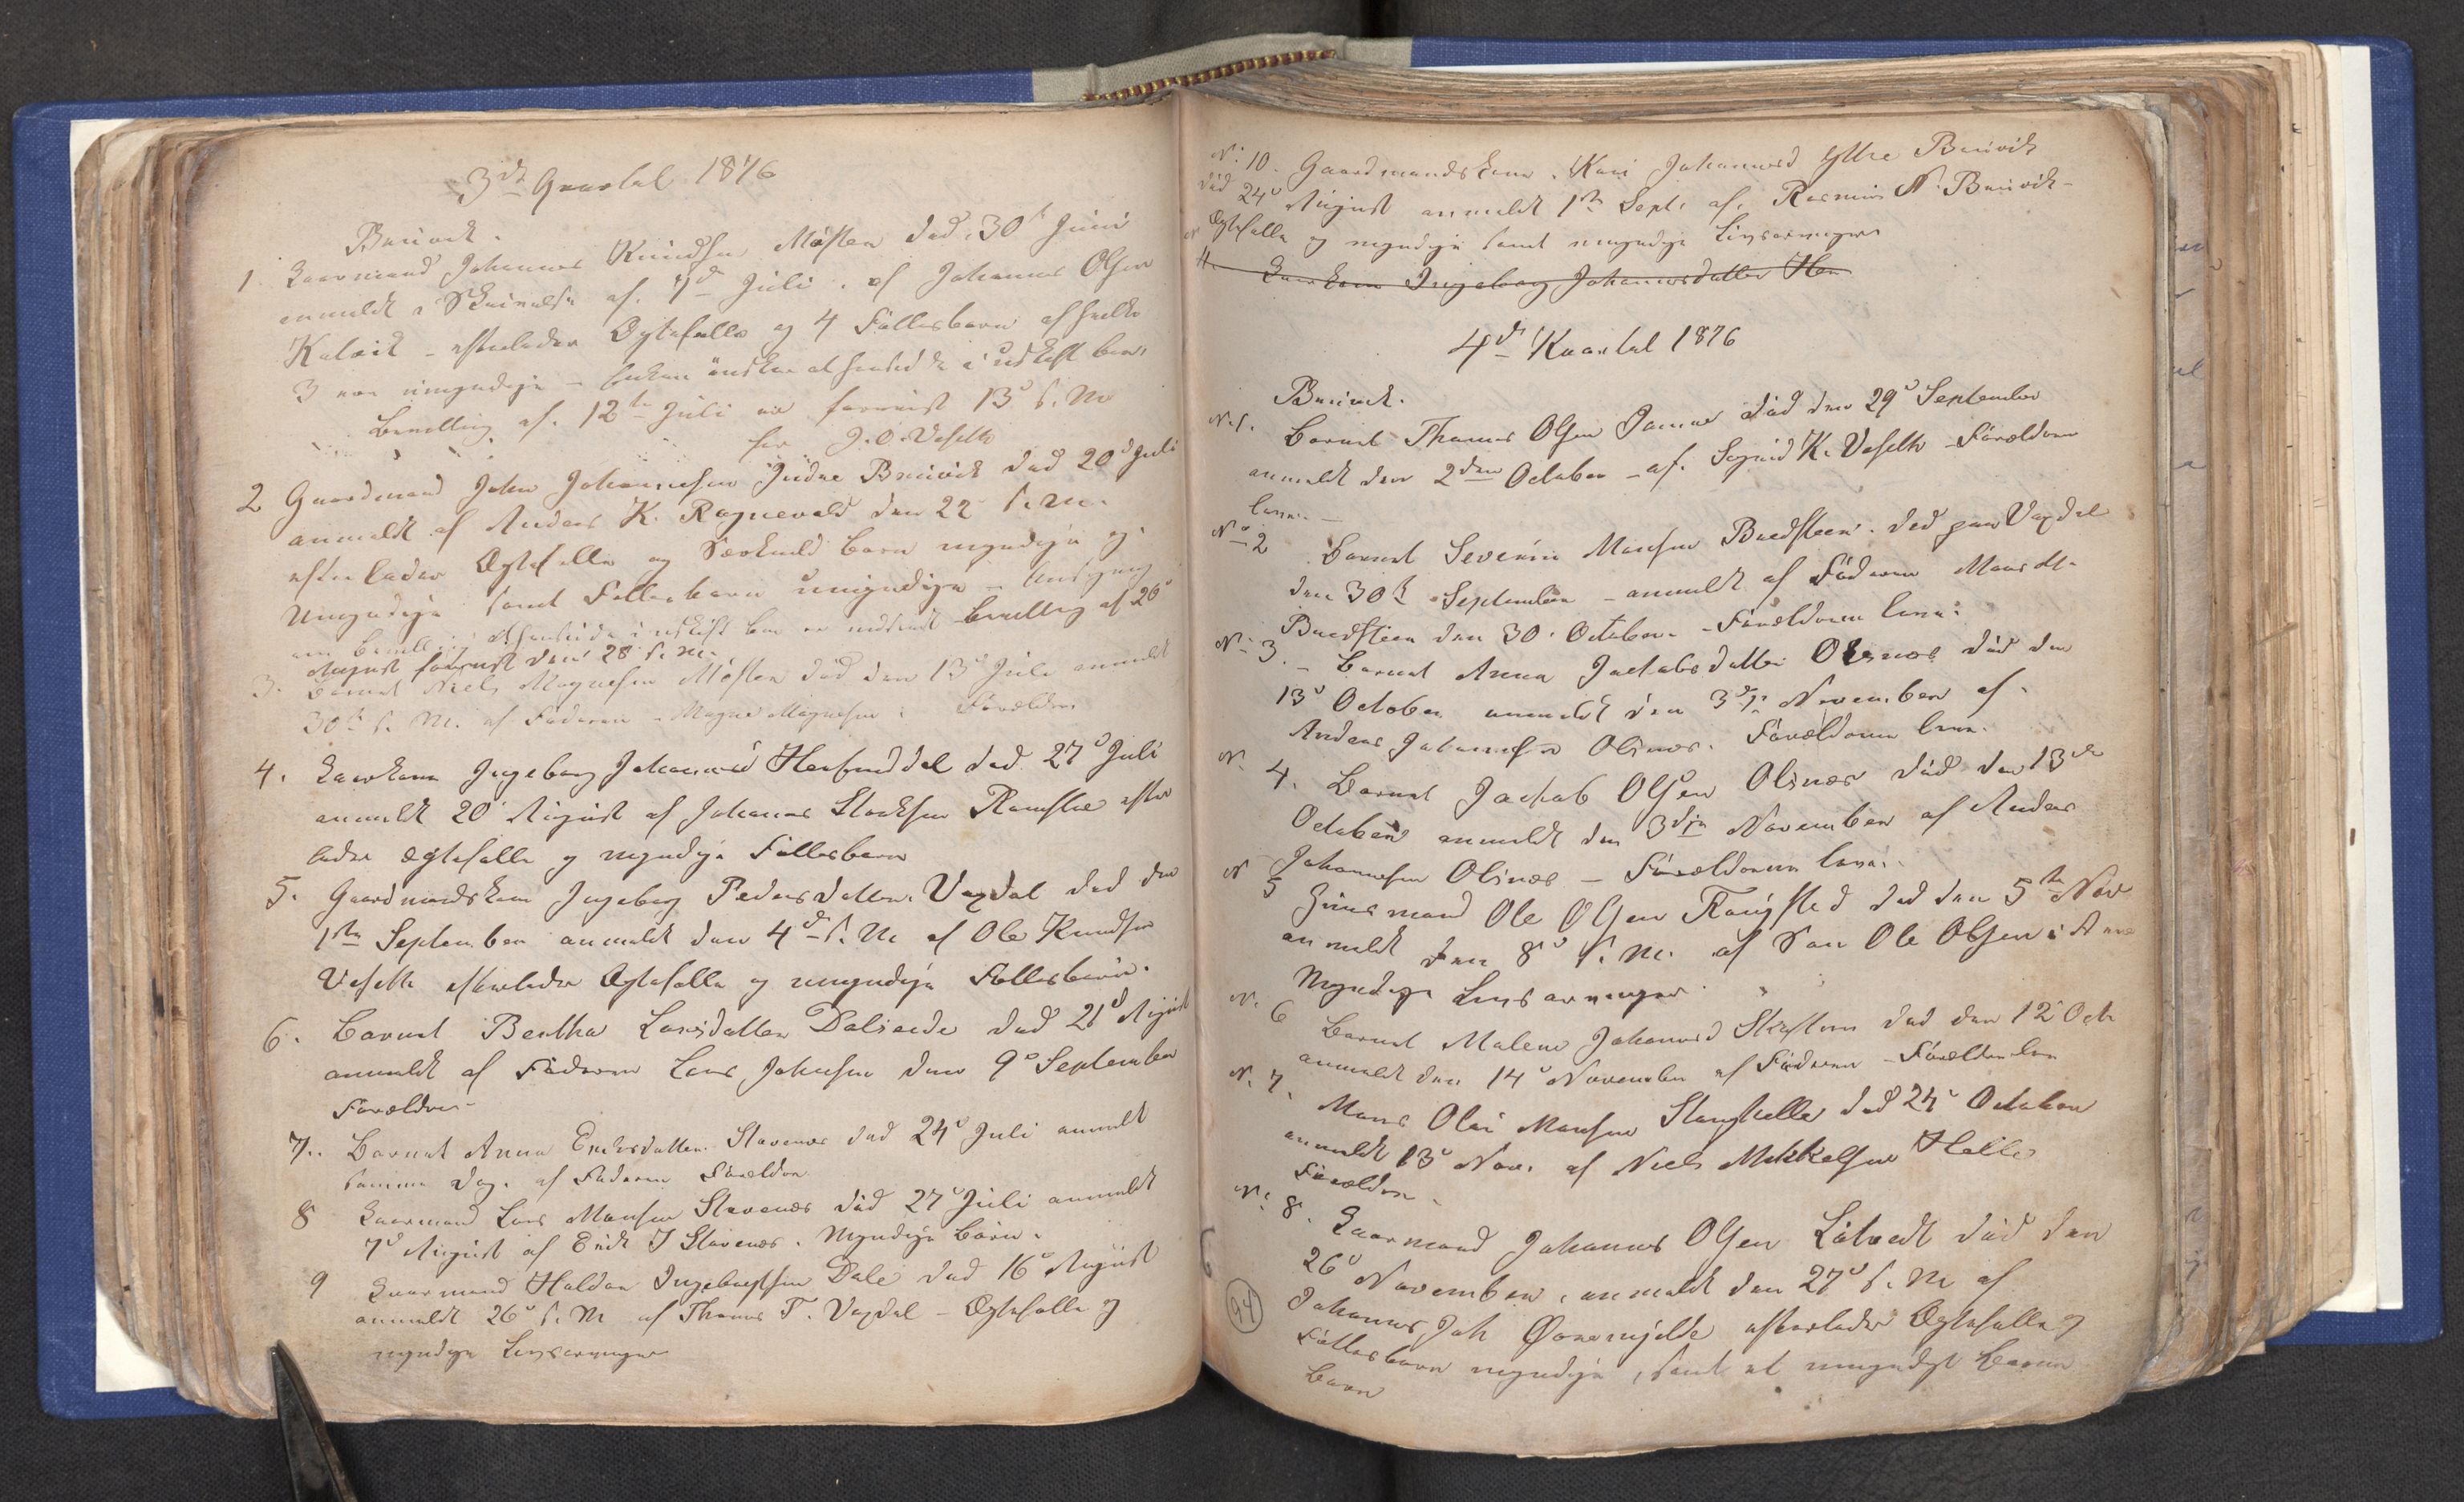 3die Qvartal 1876
Bruvik.
1 Kaarmand Johannes Knudsen Møster død 30te Juni
anmeldt Skrivelse af 7de Juli af Johannes Olsen
Kalvik - efterlader Ægtefælle og 4 Fællesbørn af hvilke
3 ere umyndige - Enken ønsker at hensidde i uskiftet bo.
Bevilling af 12te Juli er forevist 13de s. M.
for J. O. Veseth
2 Gaardmand John Johannesen Indre Bruvik død 20de Juli
anmeldt af Anders K. Rognevald den 22 s. M.
efterlader Ægtefælle og Særkuld børn myndige og
umyndige samt Fællesbørn umyndige - Ansøgning
om bevilling at hensidde i uskift bo er indsendt bevilling af 26de
August forevist den 28 s. M.
3. Barnet Niels Magnesen Møster død den 13de Juli anmeldt
30te s. M. af Faderen Magne Magnesen. Forældre
4. Kaarkone Ingeborg Johannesd Herfinddal død 27de Juli
anmeldt 20de August af Johannes efter
lader Ægtefælle og myndige Fællesbørn
5. Gaardmandskone Ingeborg Pedersdatter Vaxdal død den
1ste September anmeldt den 4de s. M af Ole Knudsen
Veseth efterlader Ægtefælle og umyndige Fællesbørn.
6. Barnet Bertha Larsdatter Dalseide død 21de August
anmeldt af Faderen Lars Johnsen den 9de September
Forældre
7. Barnet Anna Eriksdatter Stavenes død 24de Juli anmeldt
samme Dag af Faderen Forældre
8 Kaarmand Lars Monsen Stavenes død 27de Juli anmeldt
7de August af Erik I Stavenes. Myndige Børn.
9 Kaarmand Haldor Ingebrigtsen Dale død 16de August
anmeldt 26de s. M af Thomas T. Vaxdal - Ægtefælle og
myndige Livsarvinger
N: 10. Gaardmandskone Kari Johannesd Ytre Bruvik
død 24de August anmeldt 1ste Sept. af Rasmus N. Bruvik -
Ægtefælle og myndige samt umyndige Livsarvinger
11. Kaarkone Ingeborg Johannesdatter Her
4de Kvartal 1876
Bruvik.
N. 1. Barnet Thomas Olsen død den 29de September
anmeldt den 2den October - af Sjurd K. Veseth - Forældrene
leve.
No 2 Barnet Severin Monsen Bredsteen død paa Vaxdal
den 30te September - anmeldt af Faderen Mons M.
Bredsteen den 30. October - Forældrene leve.
N: 3. - Barnet Anna Jacobsdatter Olsnæs død den
13de October anmeldt den 3die November af
Anders Johannesen Olsnæs. Forældrene leve.
N 4. Barnet Jackob Olsen Olsnæs død den 13de
October anmeldt den 3die November af Anders
Johannesen Olsnæs - Forældrene leve.
N 5 Huusmand Ole Olsen død den 5te Nov
anmeldt den 8de s. M. af Søn Ole Olsen
Myndige Livsarvinger
N. 6 Barnet Malene Johannesd død den 12te Octr
anmeldt den 14de November af Faderen - Forældre leve
N. 7. Mons Olai Monsen Stanghelle død 24de October
anmeldt 13de Nov. af Niels Mikkelsen Helle
Forældre
N: 8. Kaarmand Johannes Olsen død den
26de November, anmeldt den 27de s. M af
Johannes Joh efterlader Ægtefælle og
Fællesbørn myndige, samt et umyndigt Barne
barn
94